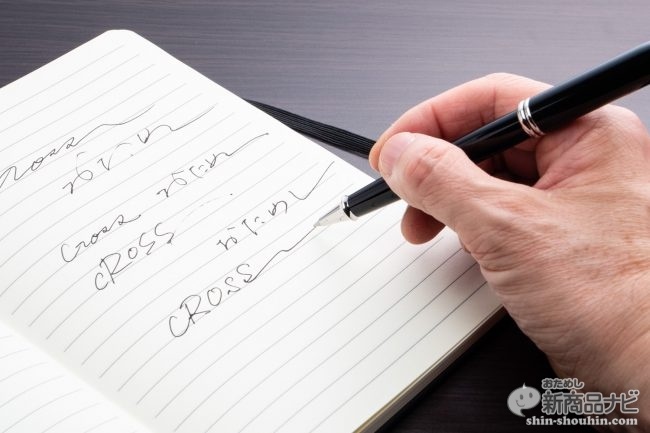 Cross
おためし
Cross おためし
CROSS
おためし
CROSS
おためし
新商品ナビ
shin-shouhin.com